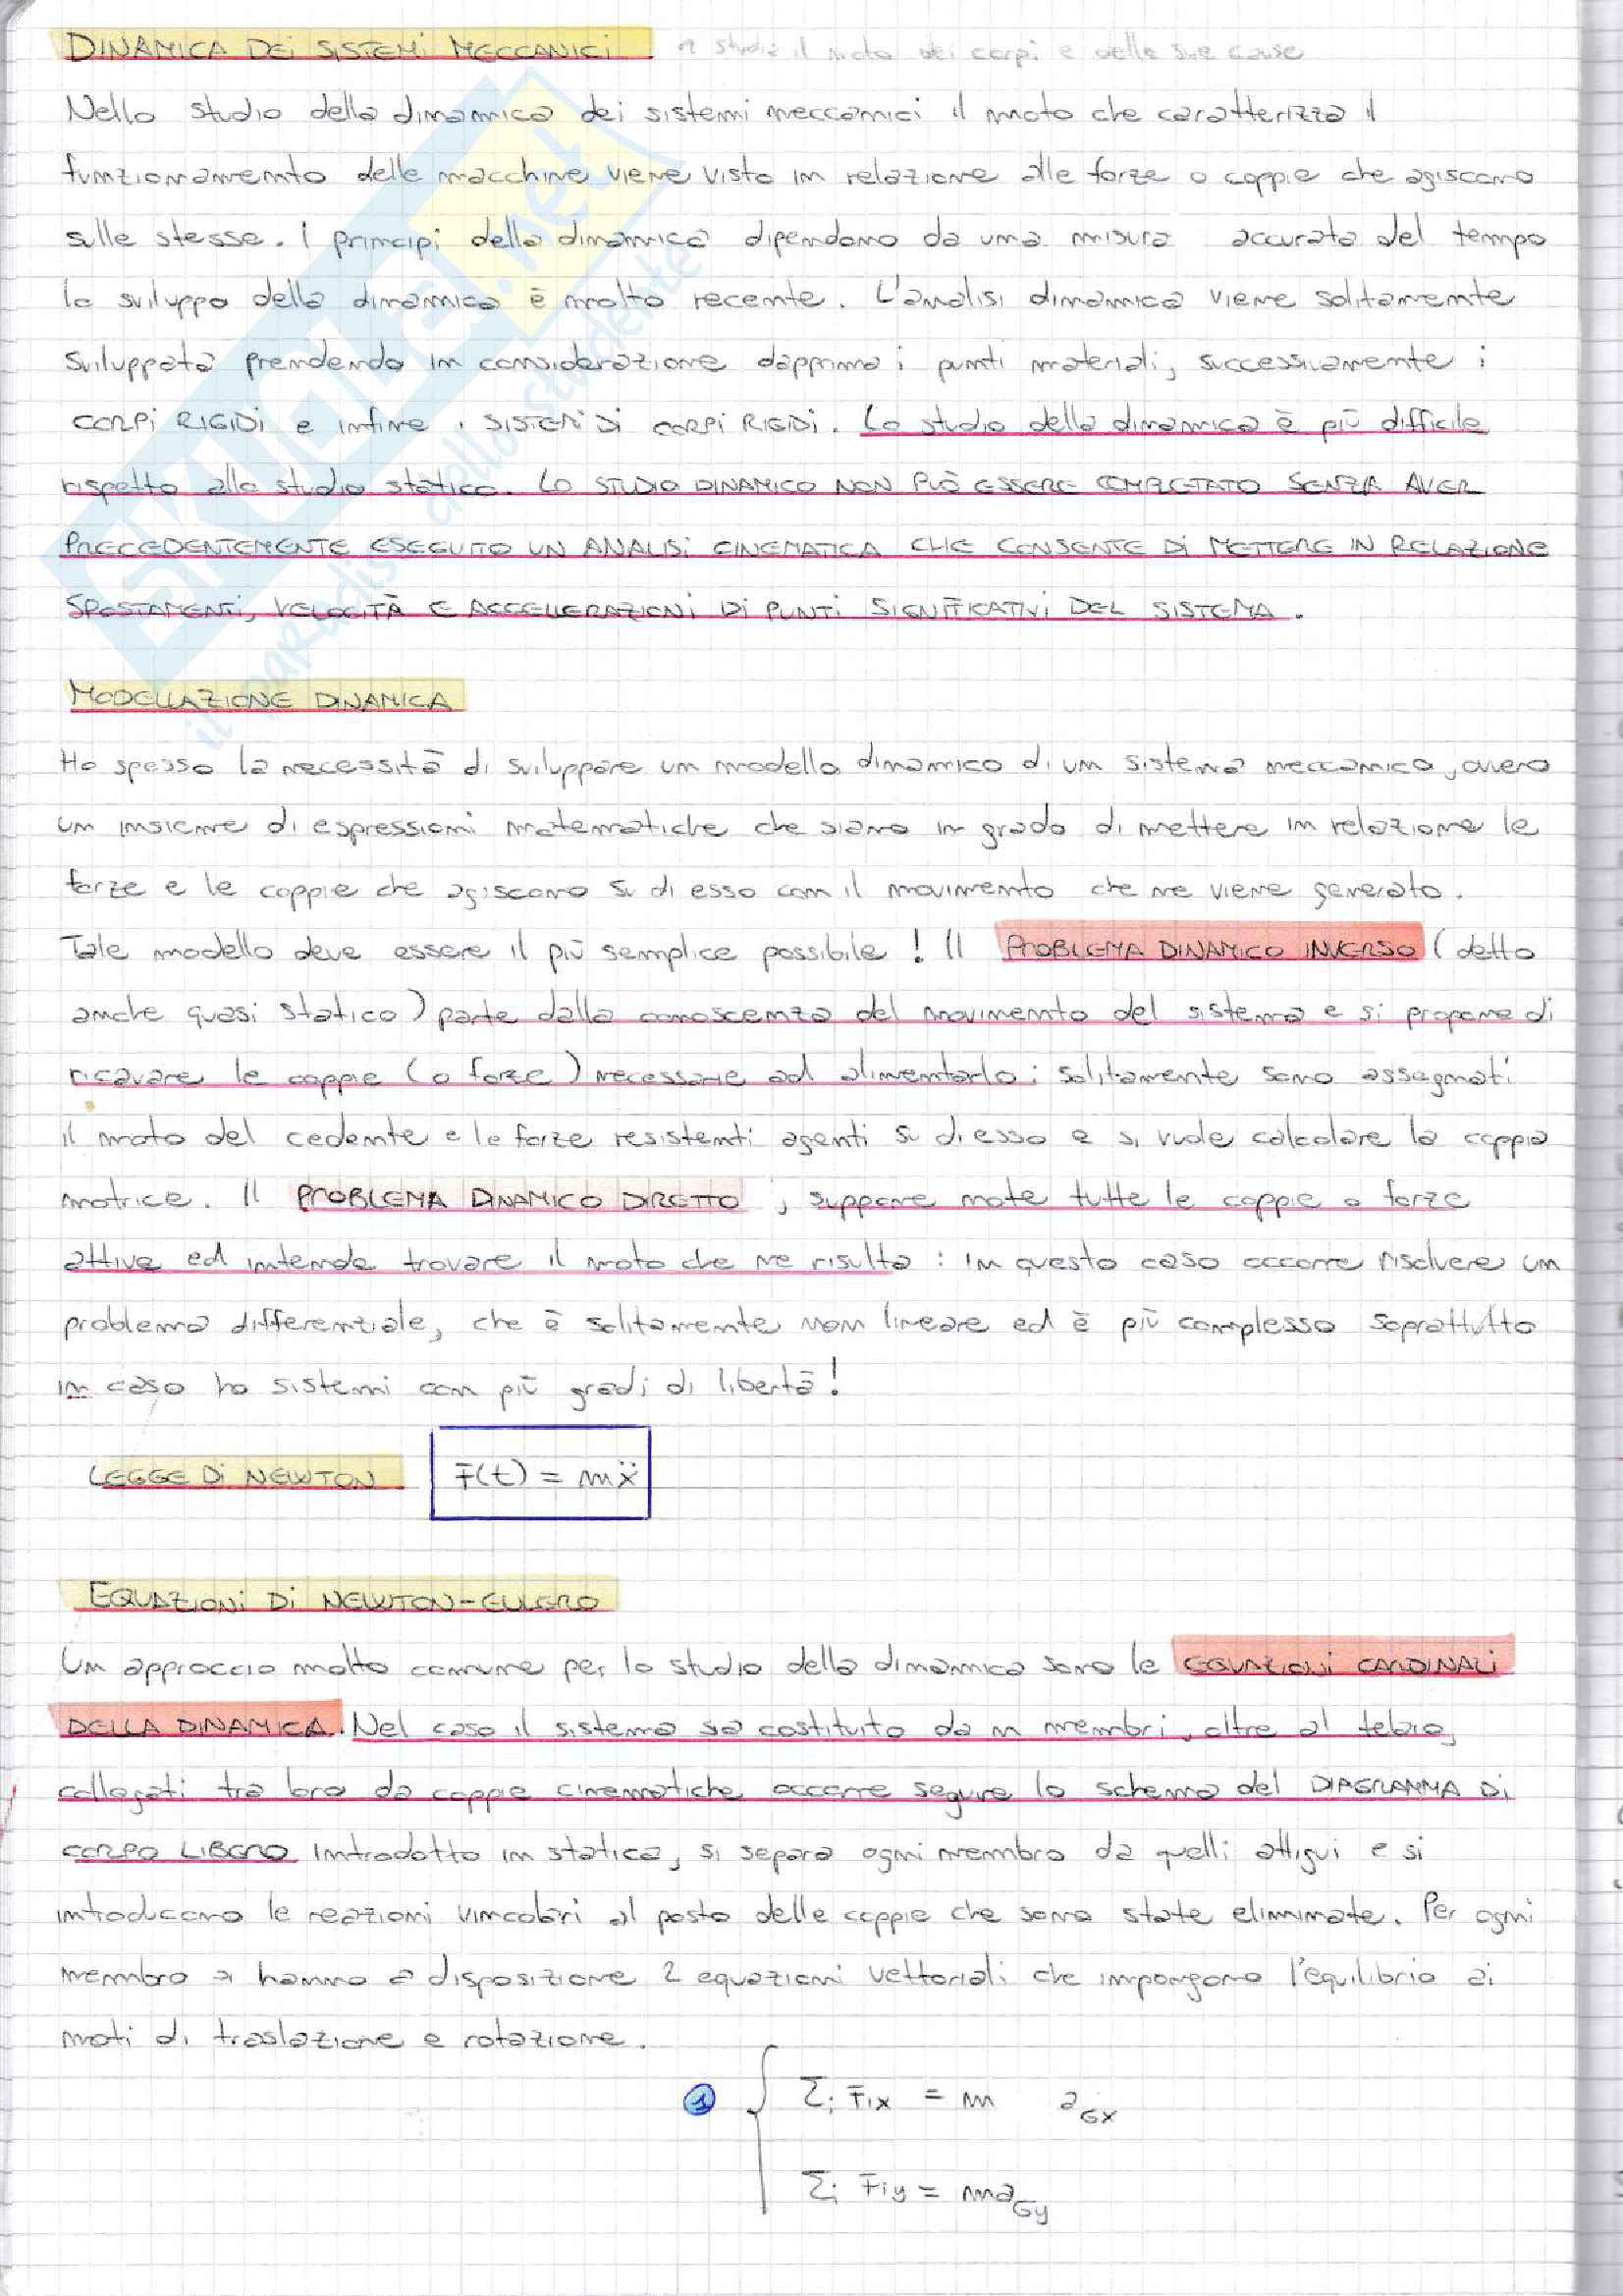 DINAMICA DEI SISTEMI MECCANICI → studia il moto dei corpi e delle sue cause
Nello studio della dinamica dei sistemi meccanici il moto che caratterizza il
funzionamento delle macchine viene visto in relazione alle forze o coppie che agiscono
sulle stesse. I principi della dinamica dipendono da una misura accurata del tempo
lo sviluppo della dinamica è molto recente. L'analisi dinamica viene solitamente
sviluppata prendendo in considerazione dapprima i punti materiali, successivamente i
CORPI RIGIDI e infine i SISTEMI DI CORPI RIGIDI. Lo studio della dinamica è più difficile
rispetto allo studio statico. LO STUDIO DINAMICO NON PUÒ ESSERE COMPLETATO SENZA AVER
PRECEDENTEMENTE ESEGUITO UN ANALISI CINEMATICA CHE CONSENTE DI METTERE IN RELAZIONE
SPOSTAMENTI, VELOCITÀ E ACCELLERAZIONI DI PUNTI SIGNIFICATIVI DEL SISTEMA.
MODELLAZIONE DINAMICA
Ho spesso la necessità di sviluppare un modello dinamico di un sistema meccanico, ovvero
un insieme di espressioni matematiche che siano in grado di mettere in relazione le
forze e le coppie che agiscono su di esso con il movimento che ne viene generato.
Tale modello deve essere il più semplice possibile! Il PROBLEMA DINAMICO INVERSO (detto
anche quasi statico) parte dalla conoscenza del movimento del sistema e si propone di
ricavare le coppie (o forze) necessarie ad alimentarlo: solitamente sono assegnati
il moto del cedente e le forze resistenti agenti su di esso e si vuole calcolare la coppia
motrice. Il PROBLEMA DINAMICO DIRETTO, suppone note tutte le coppie o forze
attive ed intende trovare il moto che ne risulta: in questo caso occorre risolvere un
problema differenziale, che è solitamente non lineare ed è più complesso soprattutto
in caso ho sistemi con più gradi di libertà!
LEGGE DI NEWTON F(t) = mẍ
EQUAZIONI DI NEWTON-EULERO
Un approccio molto comune per lo studio della dinamica sono le EQUAZIONI CARDINALI
DELLA DINAMICA. Nel caso il sistema sia costituito da n membri, oltre al telaio,
collegati tra loro da coppie cinematiche occorre seguire lo schema del DIAGRAMMA DI
CORPO LIBERO introdotto in statica, si separa ogni membro da quelli attigui e si
introducono le reazioni vincolari al posto delle coppie che sono state eliminate. Per ogni
membro si hanno a disposizione 2 equazioni vettoriali che impongono l'equilibrio ai
moti di traslazione e rotazione.
1 { Σi Fix = m aGx
Σi Fiy = m aGy
SKUOLA.net
il paradiso dello studente